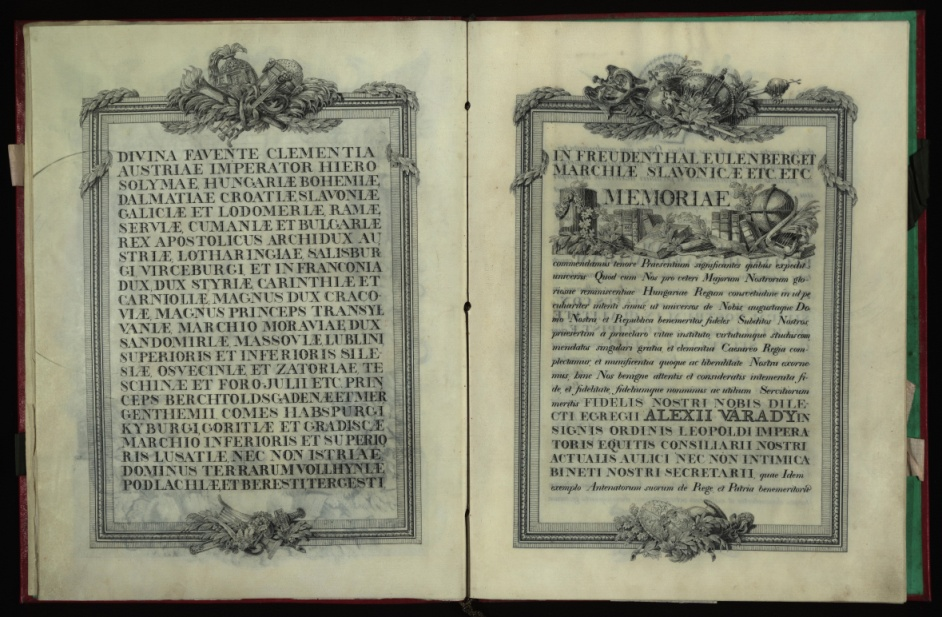 DIVINA FAVENTE CLEMENTIA
AUSTRIAE IMPERATOR HIERO
SOLYMAE HUNGARIÆ BOHEMIÆ
DALMATIAE CROATIÆ SLAVONIÆ
GALICIÆ ET LODOMERIÆ RAMÆ
SERVIÆ, CUMANIÆ ET BULGARIÆ
REX APOSTOLICUS ARCHIDUX AU
STRIÆ LOTHARINGIAE SALISBUR
GI VIRCEBURGI ET IN FRANCONIA
DUX, DUX STYRIÆ CARINTHIÆ ET
CARNIOLLÆ MAGNUS DUX CRACO-
VIÆ MAGNUS PRINCEPS TRANSYL
VANIÆ MARCHIO MORAVIAE DUX
SANDOMIRIÆ MASSOVIÆ LUBLINI
SUPERIORIS ET INFERIORIS SILE-
SIÆ OSVECINIÆ ET ZATORIAE TE
SCHINÆ ET FORO-JULII ETC. PRIN
CEPS BERCHTOLDSGADENÆ ET MER
GENTHEMII COMES HABSPURGI
KYBURGI GORITIÆ ET GRADISCÆ
MARCHIO INFERIORIS ET SUPERIO
RIS LUSATIÆ NEC NON ISTRIAE
DOMINUS TERRARUM VOLLHYNIÆ
PODLACHIÆ ET BERESTI TERGESTI
IN FREUDENTHAL EULENBERG ET
MARCHIÆ SLAVONICÆ ETC. ETC.
MEMORIAE
commendamus tenore Praesentium significantes quibus expedit
universis Quod cum Nos pro veteri Majorum Nostrorum glo-
riosae reminiscentiae Hungariae Regum consvetudine in id pe
culiariter intenti simus, ut universos de Nobis augustaque Do
mo Nostra et Republica benemeritos fideles Subditos Nostros
praesertim a praeclaro vitae instituto, virtutumque studio com
mendatos singulari gratia et clementia Caesareo Regia com-
plectamur, et munificentia quoque ac liberalitate Nostra exorne
mus, hinc Nos benigne attentis et consideratis intemerata fi-
de, et fidelitate, fideliumque nonminus ac utilium Servitiorum
meritis FIDELIS NOSTRI NOBIS DILE-
CTI EGREGII ALEXII VARADY IN
SIGNIS ORDINIS LEOPOLDI IMPERA
TORIS EQUITIS CONSILIARII NOSTRI
ACTUALIS AULICI NEC NON INTIMI CA
BINETI NOSTRI SECRETARII, quae Idem
exemplo Antenatorum suorum de Rege, et Patria benemeritoru